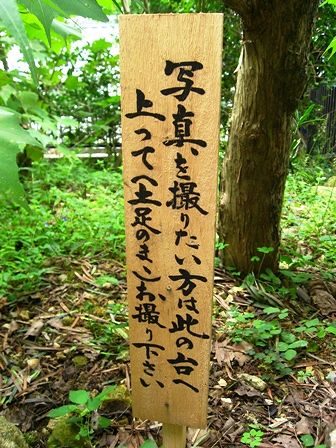 写真を撮りたい方は此の台へ
上って(土足のまゝ)お撮り下さい